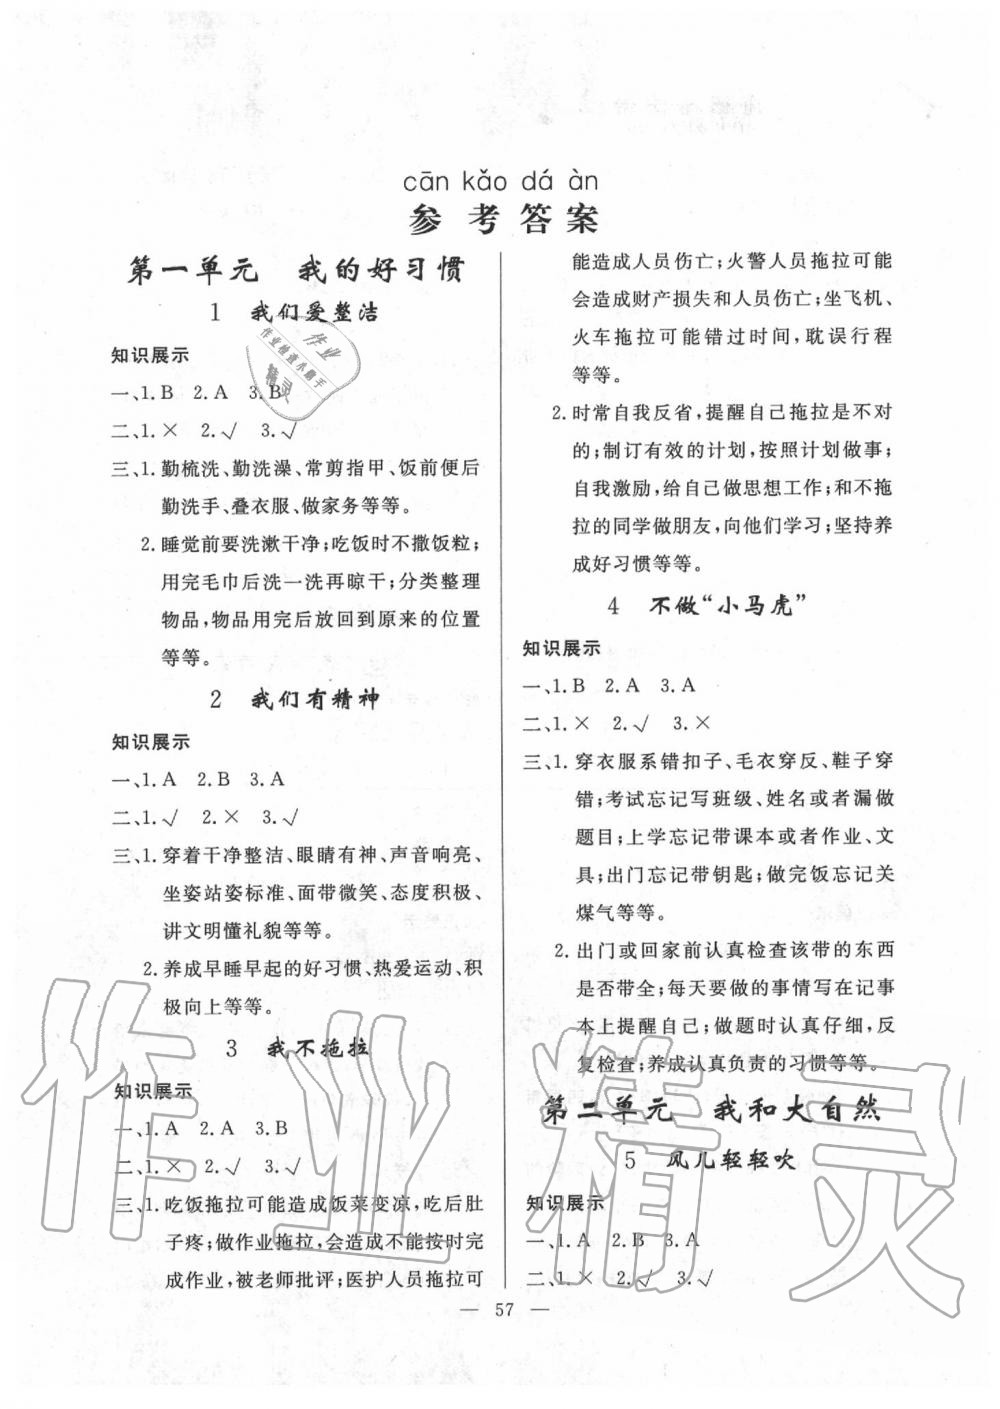 cān kǎo dá àn
参 考 答 案
第一单元　我的好习惯
1　我们爱整洁
知识展示
一、1. B　2. A　3. B
二、1. ×　2. √　3. √
三、1. 勤梳洗、勤洗澡、常剪指甲、饭前便后
勤洗手、叠衣服、做家务等等。
2. 睡觉前要洗漱干净;吃饭时不撒饭粒;
用完毛巾后洗一洗再晾干;分类整理
物品,物品用完后放回到原来的位置
等等。
2　我们有精神
知识展示
一、1. A　2. B　3. A
二、1. √　2. ×　3. √
三、1. 穿着干净整洁、眼睛有神、声音响亮、
坐姿站姿标准、面带微笑、态度积极、
讲文明懂礼貌等等。
2. 养成早睡早起的好习惯、热爱运动、积
极向上等等。
3　我不拖拉
知识展示
一、1. A　2. A　3. B
二、1. ×　2. √　3. √
三、1. 吃饭拖拉可能造成饭菜变凉,吃后肚
子疼;做作业拖拉,会造成不能按时完
成作业,被老师批评;医护人员拖拉可
能造成人员伤亡;火警人员拖拉可能
会造成财产损失和人员伤亡;坐飞机、
火车拖拉可能错过时间,耽误行程
等等。
2. 时常自我反省,提醒自己拖拉是不对
的;制订有效的计划,按照计划做事;
自我激励,给自己做思想工作;和不拖
拉的同学做朋友,向他们学习;坚持养
成好习惯等等。
4　不做“小马虎”
知识展示
一、1. B　2. A　3. A
二、1. ×　2. √　3. ×
三、1. 穿衣服系错扣子、毛衣穿反、鞋子穿
错;考试忘记写班级、姓名或者漏做
题目;上学忘记带课本或者作业、文
具;出门忘记带钥匙;做完饭忘记关
煤气等等。
2. 出门或回家前认真检查该带的东西
是否带全;每天要做的事情写在记事
本上提醒自己;做题时认真仔细,反
复检查;养成认真负责的习惯等等。
第二单元　我和大自然
5　风儿轻轻吹
知识展示
一、1. A　2. B　3. A
二、1. ×　2. √　3. √
— 57 —
作业
作业检查小助手
精灵
作业精灵